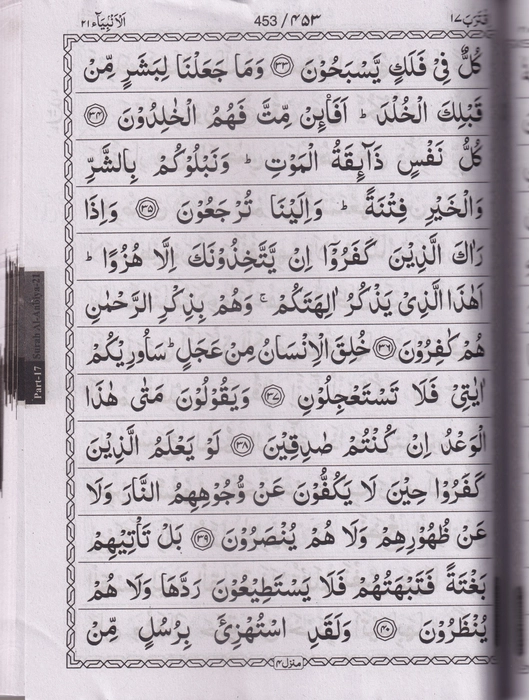 قترب ١٧ ٤٥٣ / 453 الانبیآء ٢١
كُلٌّ فِیْ فَلَكٍ یَّسْبَحُوْنَ ﴿٣٣﴾ وَمَا جَعَلْنَا لِبَشَرٍ مِّنْ
قَبْلِكَ الْخُلْدَ ؕ اَفَا۠ئِنْ مِّتَّ فَهُمُ الْخٰلِدُوْنَ ﴿٣٤﴾
كُلُّ نَفْسٍ ذَآئِقَةُ الْمَوْتِ ؕ وَنَبْلُوْكُمْ بِالشَّرِّ
وَالْخَیْرِ فِتْنَةً ؕ وَاِلَیْنَا تُرْجَعُوْنَ ﴿٣٥﴾ وَاِذَا
رَاٰكَ الَّذِیْنَ كَفَرُوْۤا اِنْ یَّتَّخِذُوْنَكَ اِلَّا هُزُوًا ؕ
اَهٰذَا الَّذِیْ یَذْكُرُ اٰلِهَتَكُمْ ۚ وَهُمْ بِذِكْرِ الرَّحْمٰنِ
هُمْ كٰفِرُوْنَ ﴿٣٦﴾ خُلِقَ الْاِنْسَانُ مِنْ عَجَلٍ ؕ سَاُورِیْكُمْ
اٰیٰتِیْ فَلَا تَسْتَعْجِلُوْنِ ﴿٣٧﴾ وَیَقُوْلُوْنَ مَتٰی هٰذَا
الْوَعْدُ اِنْ كُنْتُمْ صٰدِقِیْنَ ﴿٣٨﴾ لَوْ یَعْلَمُ الَّذِیْنَ
كَفَرُوْا حِیْنَ لَا یَكُفُّوْنَ عَنْ وُّجُوْهِهِمُ النَّارَ وَلَا
عَنْ ظُهُوْرِهِمْ وَلَا هُمْ یُنْصَرُوْنَ ﴿٣٩﴾ بَلْ تَاْتِیْهِمْ
بَغْتَةً فَتَبْهَتُهُمْ فَلَا یَسْتَطِیْعُوْنَ رَدَّهَا وَلَا هُمْ
یُنْظَرُوْنَ ﴿٤٠﴾ وَلَقَدِ اسْتُهْزِئَ بِرُسُلٍ مِّنْ
منزل ٤
Part-17 Surah Al-Anbiya-21